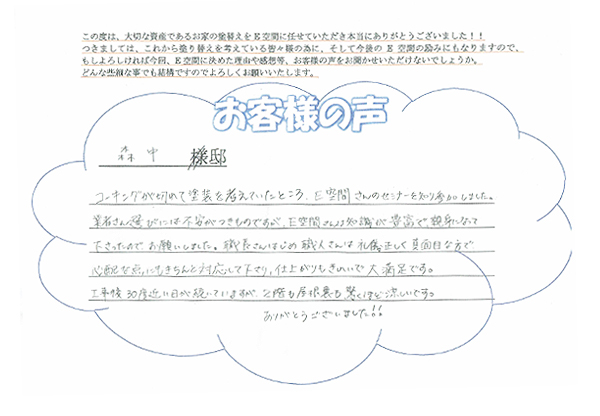 この度は、大切な資産であるお家の塗替えをE空間に任せていただき本当にありがとうございました！！
つきましては、これから塗り替えを考えている皆々様の為に、そして今後のE空間の励みにもなりますので、
もしよろしければ今回、E空間に決めた理由や感想等、お客様の声をお聞かせいただけないでしょうか。
どんな些細な事でも結構ですのでよろしくお願いいたします。
お客様の声
森中 様邸
コーキングが切れて塗装を考えていたところ、E空間さんのセミナーを知り参加しました。
業者さん選びには不安がつきものですが、E空間さんは知識が豊富で親身になって
下さったのでお願いしました。職長さんはじめ職人さんは礼儀正しく真面目な方で
心配な点にもきちんと対応して下さり、仕上がりもきれいで大満足です。
工事後30度近い日が続いていますが、2階も屋根裏も驚くほど涼しいです。
ありがとうございました!!